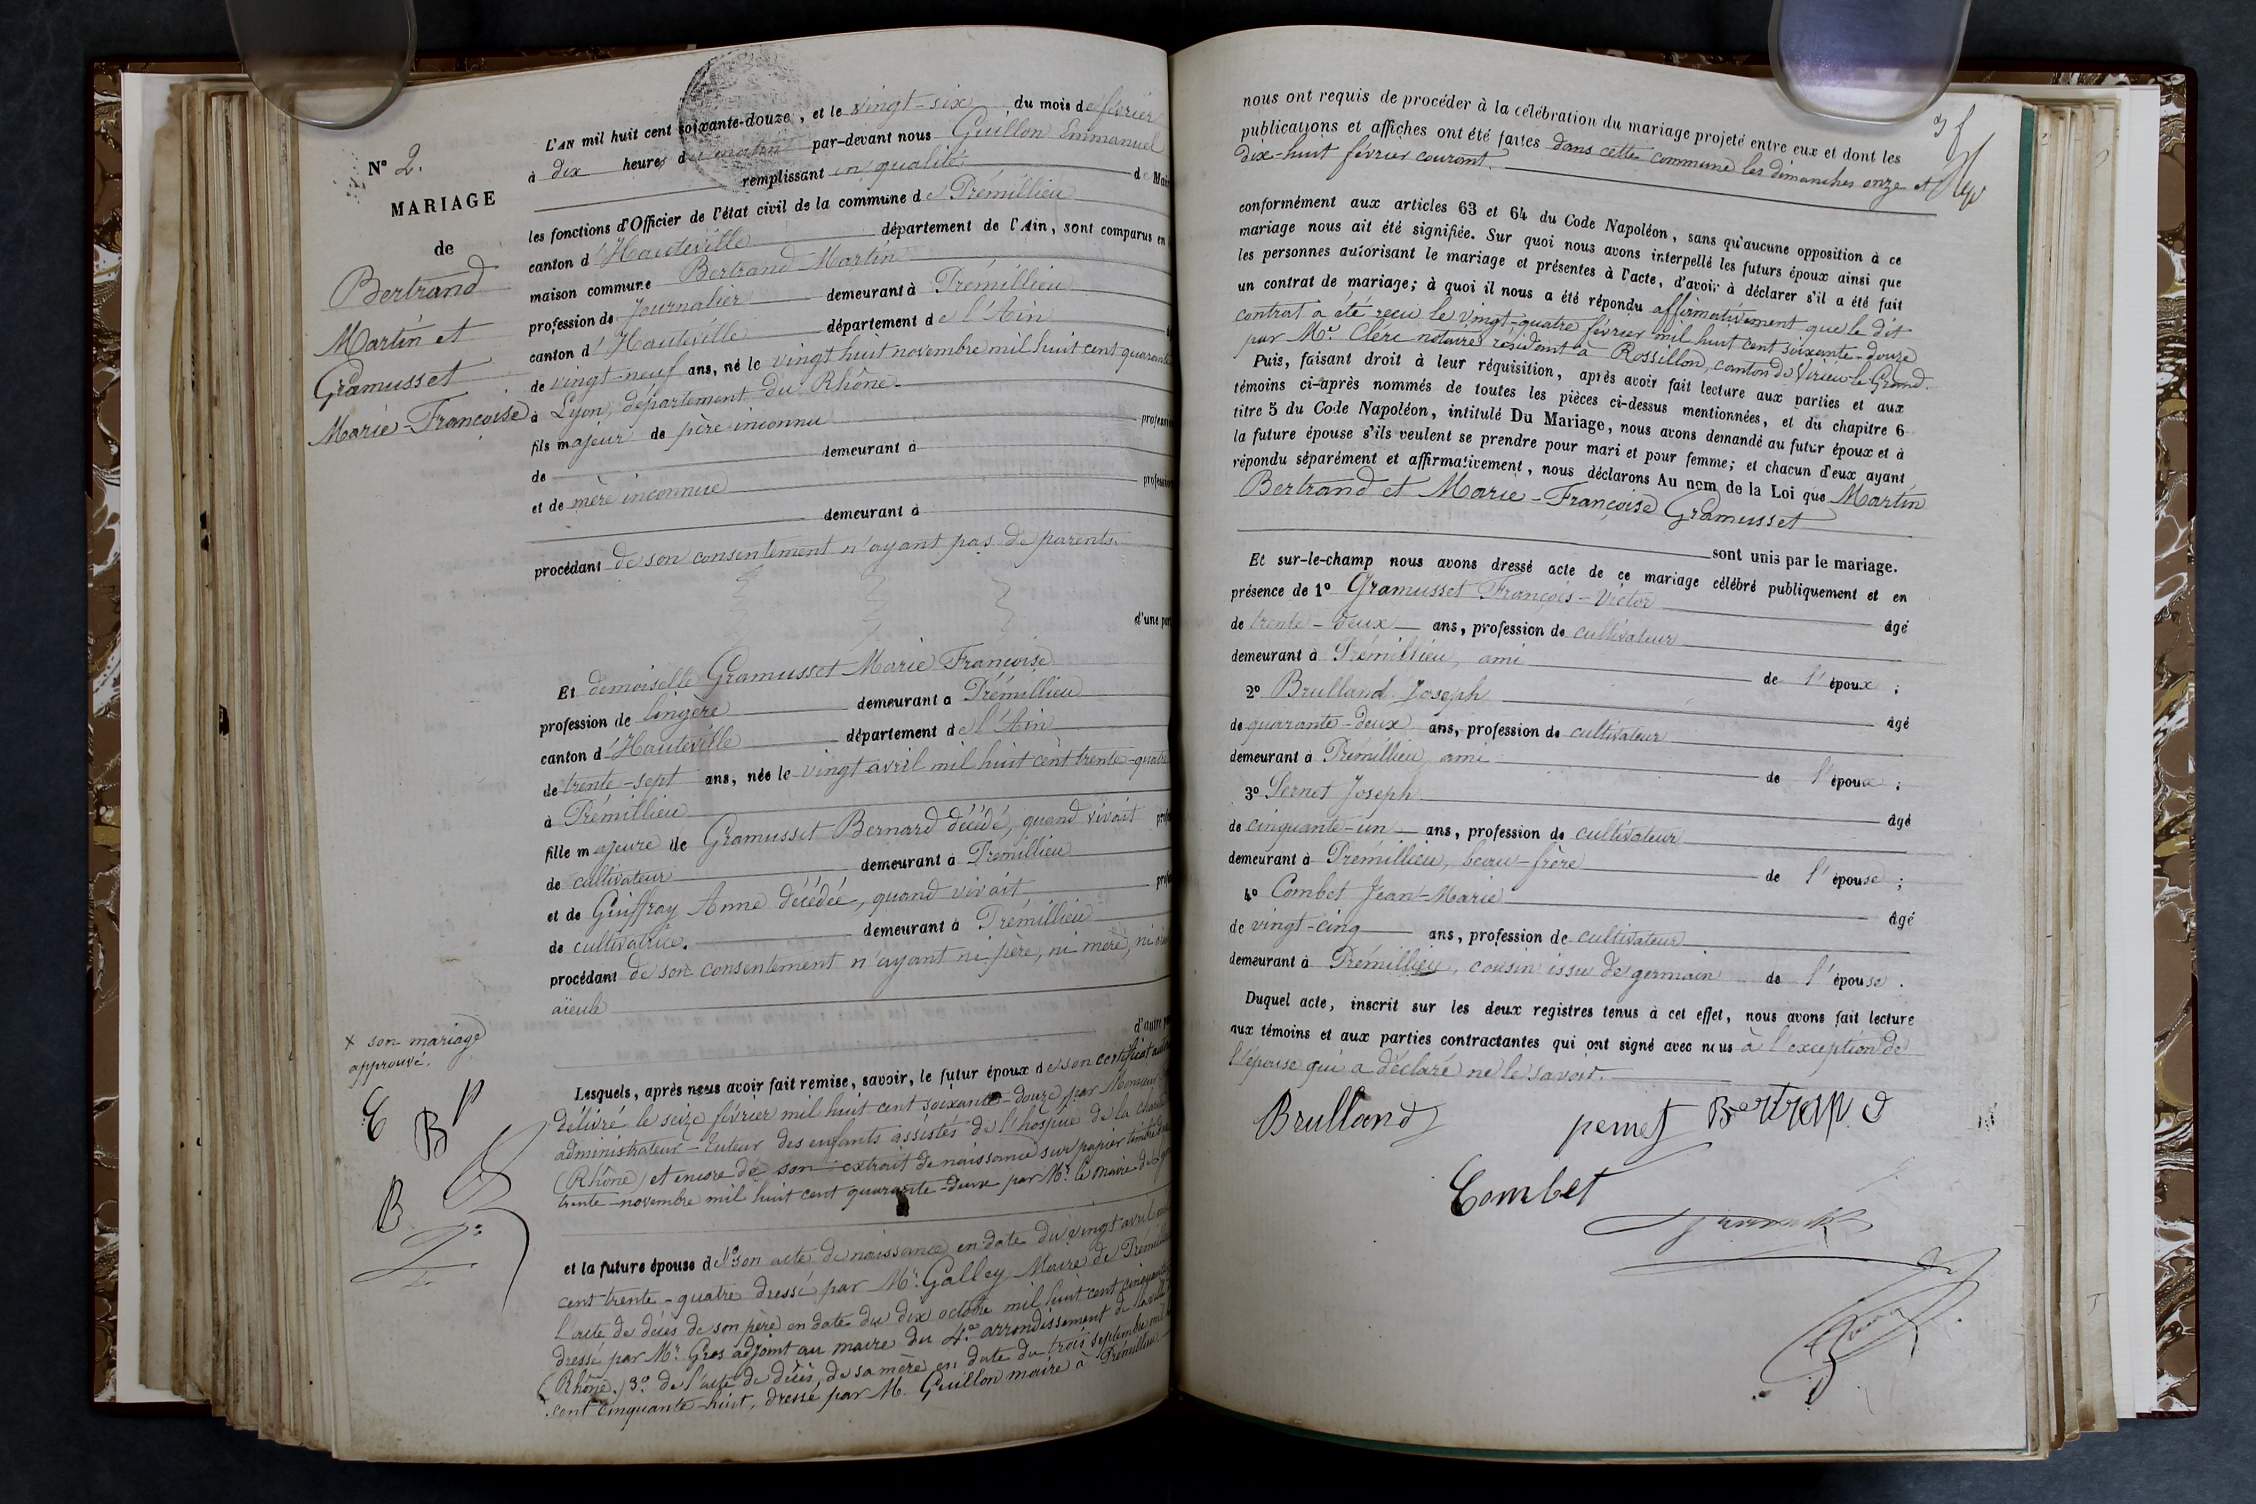 N° 2.
MARIAGE
de
Bertrand
Martin et
Gramusset
Marie-Françoise
L'AN mil huit cent soixante-douze, et le vingt-six du mois de février
à dix heures du matin par-devant nous Guillon Emmanuel
remplissant en qualité de Mai
les fonctions d'Officier de l'état civil de la commune de Prémillieu
canton d'Hauteville département de l'Ain, sont comparus en
maison commune Bertrand Martin
profession de Journalier demeurant à Prémillieu
canton d'Hauteville département de l'Ain
de vingt-neuf ans, né le vingt huit novembre mil huit cent quarante
à Lyon, département du Rhône
fils majeur de père inconnu profession
de demeurant à
et de mère inconnue profession
demeurant à
procédant de son consentement n'ayant pas de parents.
d'une par
Et demoiselle Gramusset Marie Françoise
profession de lingère demeurant à Prémillieu
canton d'Hauteville département de l'Ain
de trente-sept ans, née le vingt avril mil huit cent trente-quatre
à Prémillieu
fille majeure de Gramusset Bernard décédé, quand vivait profe
de cultivateur demeurant à Prémillieu
et de Guiffray Anne décédée, quand vivait profe
de cultivatrice. demeurant à Prémillieu
procédant de son consentement n'ayant ni père, ni mère, ni
aïeule
d'autre pa
x son mariage
approuvé.
E B P
B
Lesquels, après nous avoir fait remise, savoir, le futur époux de son certificat
délivré le seize février mil huit cent soixante-douze par Monsieur
administrateur-tuteur des enfants assistés de l'hospice de la charité
(Rhône) et encore de son extrait de naissance sur papier timbré
trente novembre mil huit cent quarante-deux par Mr. le maire de Lyon
et la future épouse de 1° son acte de naissance en date du vingt avril
cent trente-quatre dressé par Mr. Galley Maire de Prémillieu
l'acte de décès de son père en date du dix octobre mil huit cent cinquante
dressé par Mr. Gros adjoint au maire du 4e arrondissement de la ville
(Rhône.) 3° de l'acte de décès de sa mère en date du trois septembre mil
cent cinquante-huit, dressé par M. Guillon maire à Prémillieu
nous ont requis de procéder à la célébration du mariage projeté entre eux et dont les
publications et affiches ont été faites dans cette commune les dimanches onze et
dix-huit février courant.
conformément aux articles 63 et 64 du Code Napoléon, sans qu'aucune opposition à ce
mariage nous ait été signifiée. Sur quoi nous avons interpellé les futurs époux ainsi que
les personnes autorisant le mariage et présentes à l'acte, d'avoir à déclarer s'il a été fait
un contrat de mariage; à quoi il nous a été répondu affirmativement que le dit
contrat a été reçu le vingt-quatre février mil huit cent soixante-douze
par Me. Clerc notaire résidant à Rossillon, canton de Virieu-le-Grand.
Puis, faisant droit à leur réquisition, après avoir fait lecture aux parties et aux
témoins ci-après nommés de toutes les pièces ci-dessus mentionnées, et du chapitre 6
titre 5 du Code Napoléon, intitulé Du Mariage, nous avons demandé au futur époux et à
la future épouse s'ils veulent se prendre pour mari et pour femme; et chacun d'eux ayant
répondu séparément et affirmativement, nous déclarons Au nom de la Loi que Martin
Bertrand et Marie-Françoise Gramusset
sont unis par le mariage.
Et sur-le-champ nous avons dressé acte de ce mariage célébré publiquement et en
présence de 1° Gramusset François-Victor âgé
de trente-deux ans, profession de cultivateur
demeurant à Prémillieu, ami de l'époux ;
2° Brulland Joseph âgé
de quarante-deux ans, profession de cultivateur
demeurant à Prémillieu ami de l'époux ;
3° Pernet Joseph âgé
de cinquante-un ans, profession de cultivateur
demeurant à Prémillieu, beau-frère de l'épouse ;
4° Combet Jean-Marie âgé
de vingt-cinq ans, profession de cultivateur
demeurant à Prémillieu, cousin issu de germain de l'épouse.
Duquel acte, inscrit sur les deux registres tenus à cet effet, nous avons fait lecture
aux témoins et aux parties contractantes qui ont signé avec nous à l'exception de
l'épouse qui a déclaré ne le savoir.
Brulland pernet Bertrand
Combet